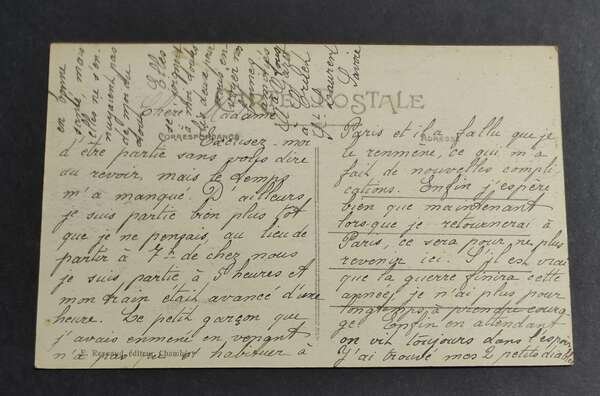 CARTE POSTALE
CORRESPONDANCE
ADRESSE
Chère Madame
Excusez-moi
d'être partie sans vous dire
du revoir mais le temps
m'a manqué. D'ailleurs
je suis partie bien plus tôt
que je ne pensais, au lieu de
partir à 7h de chez nous
je suis partie à 5 heures et
mon train était avancé d'une
heure. Le petit garçon que
j'avais emmené en venant
n'a pas pu s'habituer à
E. Reynaud, éditeur, Chambéry
Paris et il a fallu que je
le remmène, ce qui m'a
fait de nouvelles compli
cations. Enfin j'espère
bien que maintenant
lorsque je retournerai à
Paris, ce sera pour ne plus
revenir ici. S'il est vrai
que la guerre finira cette
année, je n'ai plus pour
longtemps à prendre coura
ge. Enfin en attendant
on vit toujours dans l'espoir
J'ai trouvé mes 2 petits diables
en bonne
santé mais
elles ne s'en
nuyaient pas
de moi du
tout.
Elles
se
à moi toutes
les deux pour
vous en
St Laurent
Savoie